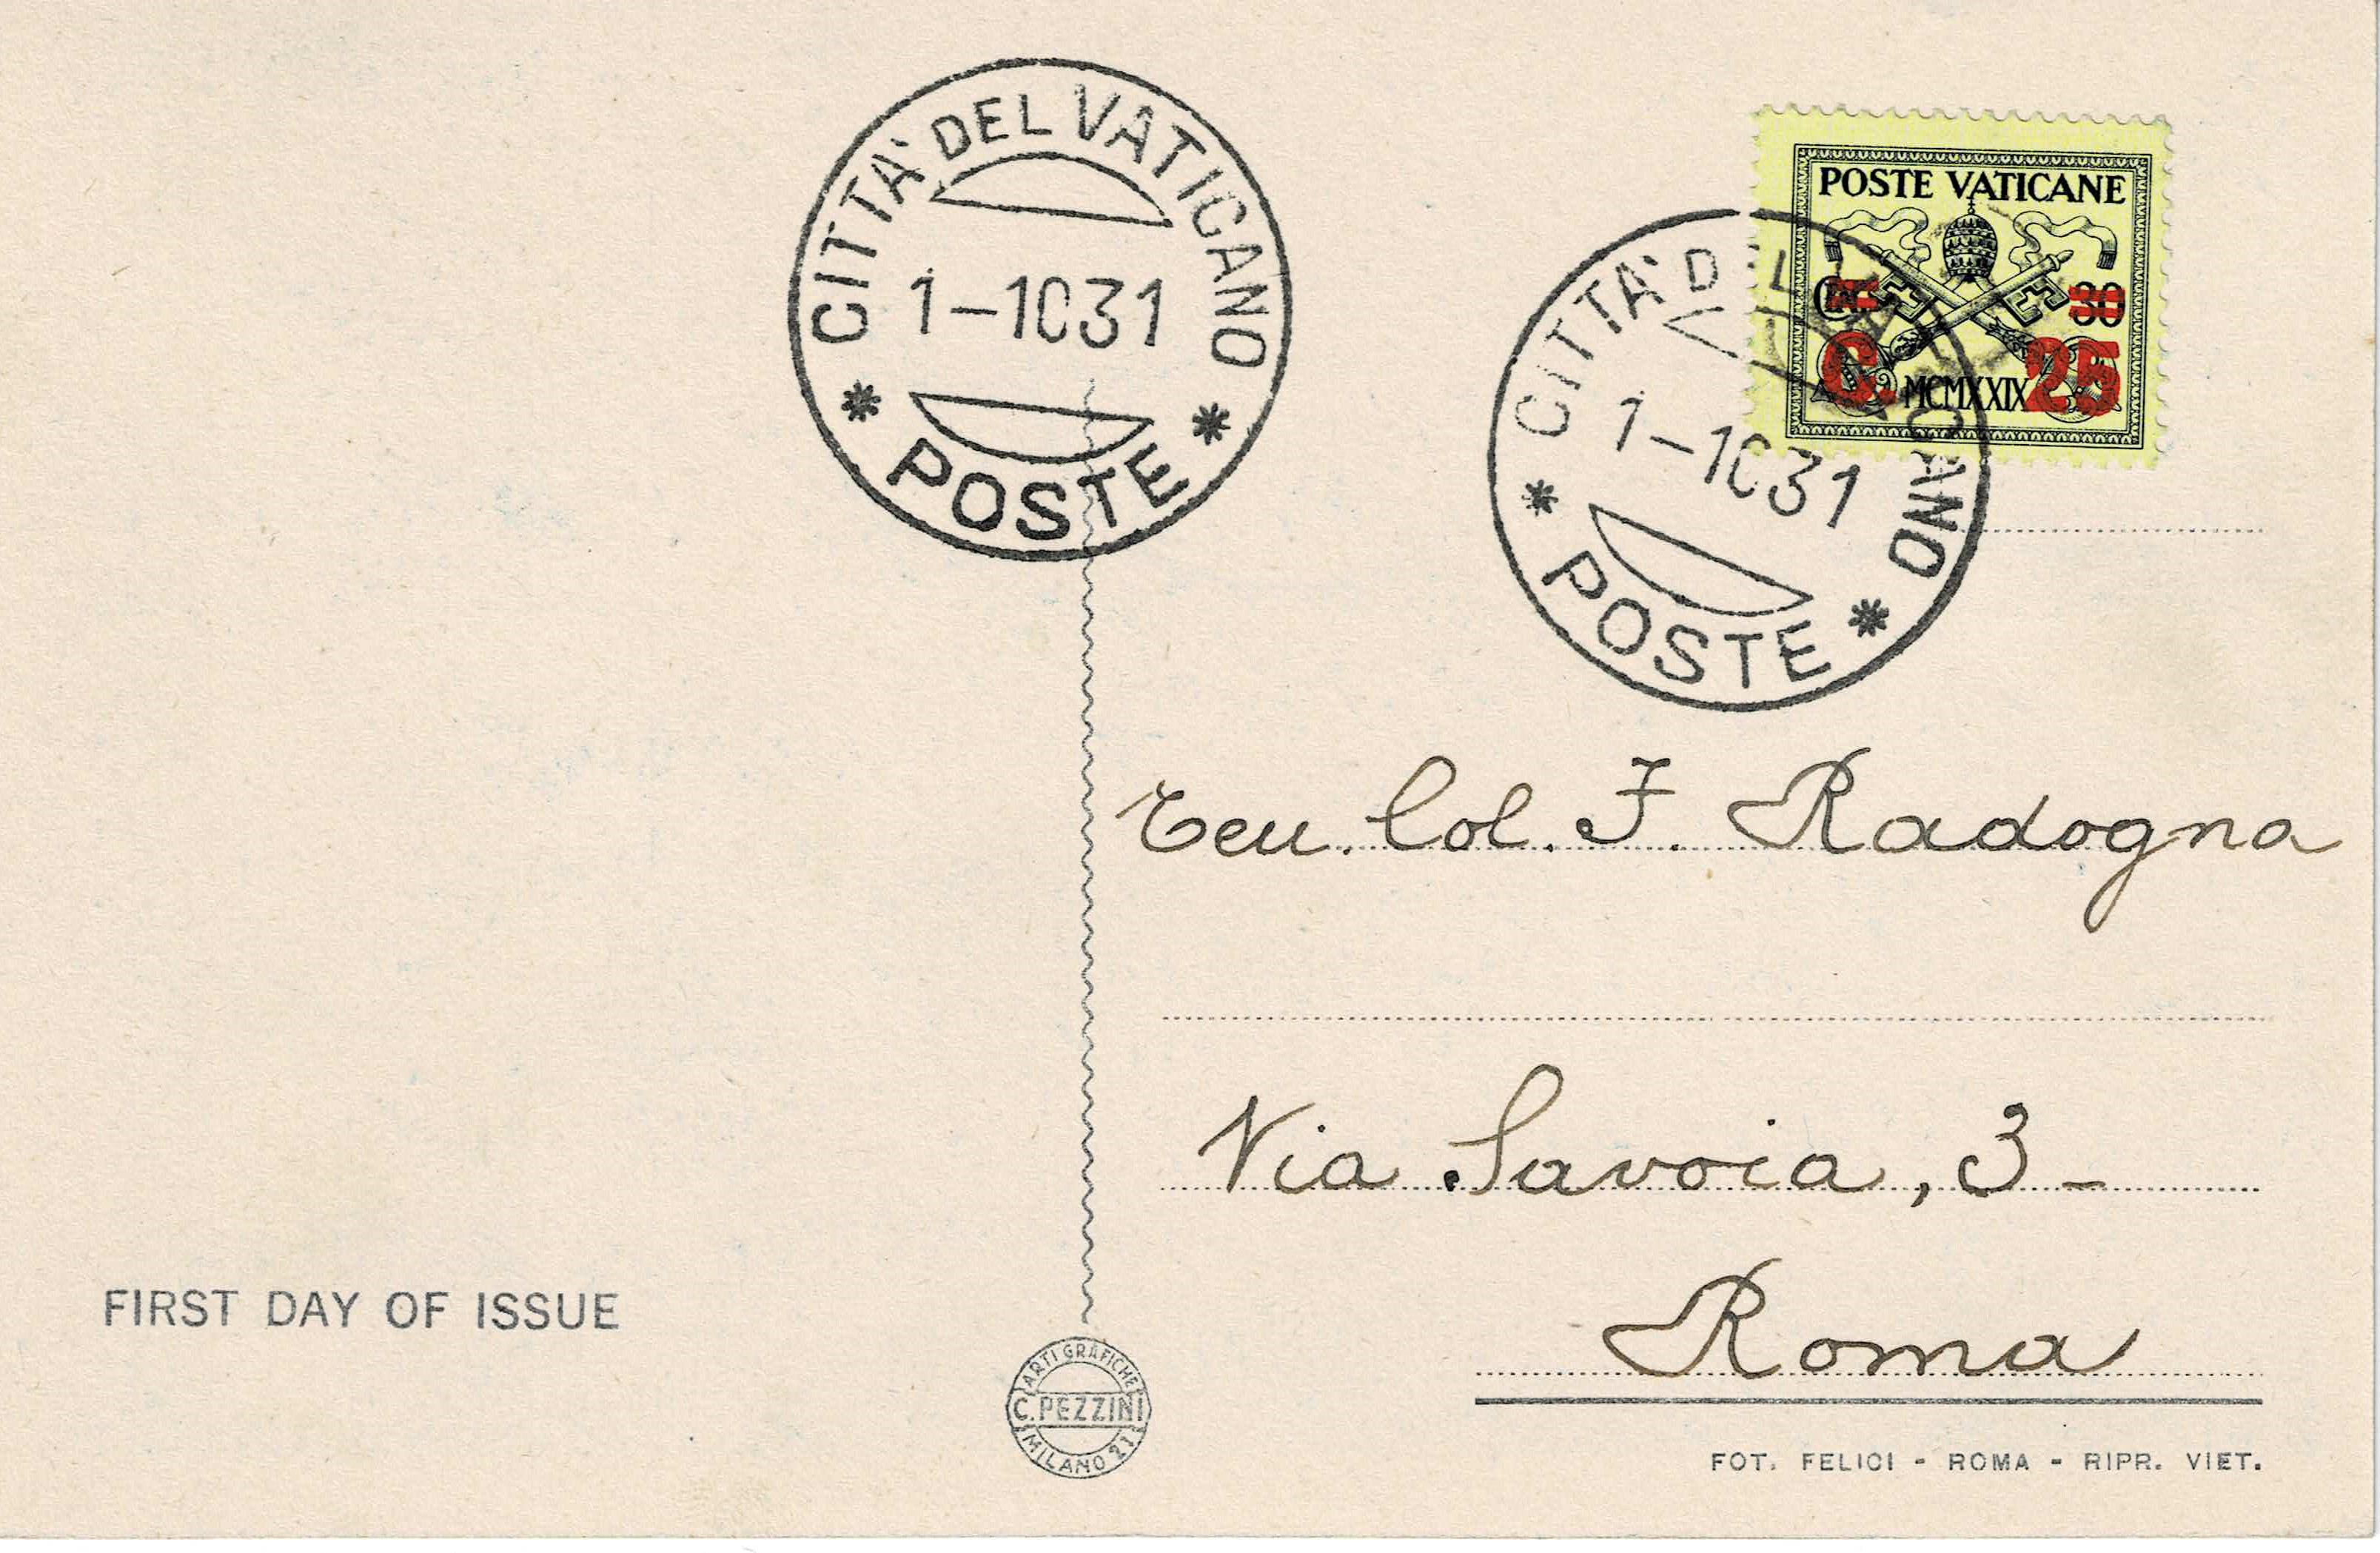 CITTA' DEL VATICANO
1-1031
* POSTE *
POSTE VATICANE
30
C. MCMXXIX 25
CITTA' DEL VATICANO
1-1031
* POSTE *
Ten. Col. F. Radogna
Via Savoia, 3 -
Roma
FIRST DAY OF ISSUE
ARTI GRAFICHE
C. PEZZINI
MILANO 21
FOT. FELICI - ROMA - RIPR. VIET.